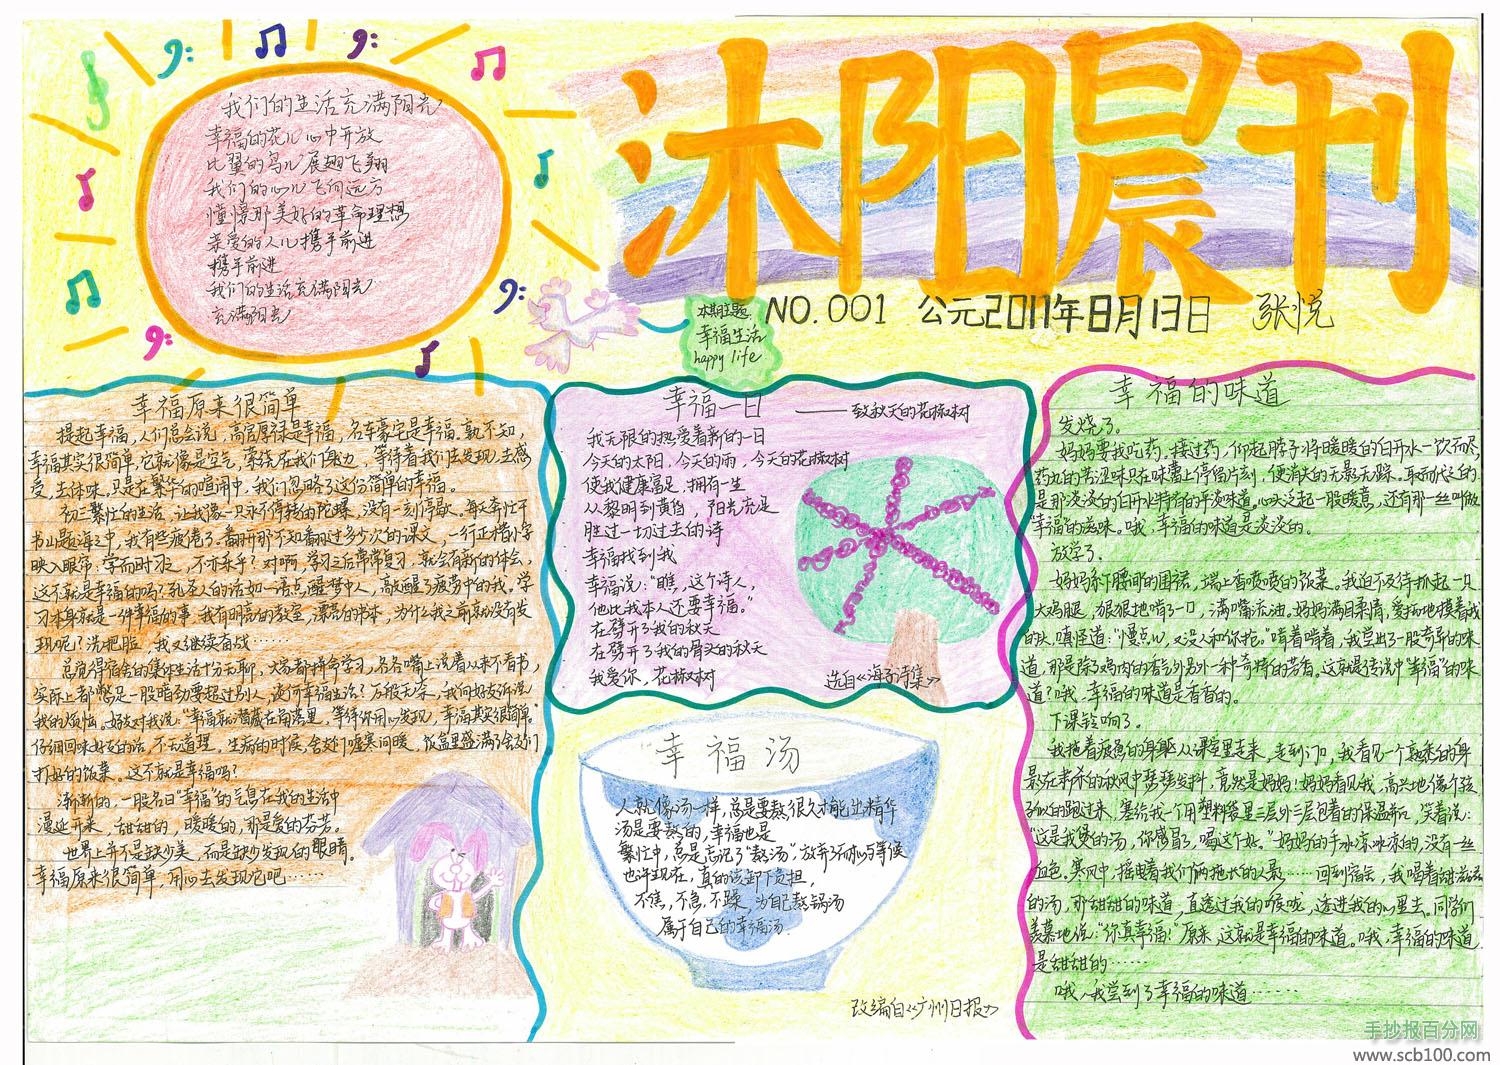 沐阳晨刊
NO.001 公元2011年8月13日 张悦
本期主题:
幸福生活
happy life
我们的生活充满阳光
幸福的花儿心中开放
比翼的鸟儿展翅飞翔
我们的心儿飞向远方
憧憬那美好的革命理想
亲爱的人儿携手前进
携手前进
我们的生活充满阳光
充满阳光
幸福原来很简单
提起幸福,人们总会说,高官厚禄是幸福,名车豪宅是幸福。孰不知,
幸福其实很简单,它就像是空气,萦绕在我们身边,等待着我们去发现,去感
受,去体味。只是在繁华的喧闹中,我们忽略了这份简单的幸福。
初三繁忙的生活,让我像一只永不停转的陀螺,没有一刻停歇。每天奔忙于
书山题海之中,我有些疲倦了。翻开那不知翻过多少次的课文,一行正楷小字
映入眼帘,学而时习之,不亦乐乎?对啊,学习之后常常复习,就会有新的体会,
这不就是幸福的吗?孔圣人的话如一语点醒梦中人,敲醒了疲劳中的我。学
习本身就是一件幸福的事,我有明亮的教室,漂亮的书本,为什么我之前就没有发
现呢?洗把脸,我又继续奋战……
总觉得宿舍的集体生活十分无聊,大家都拼命学习,各各嘴上说着从来不看书,
实际上都憋足一股暗劲要超过别人,谈何幸福生活?万般无奈,我向好友诉说
我的烦恼。好友对我说:“幸福就潜藏在角落里,等待你用心发现,幸福其实很简单。”
仔细回味好友的话,不无道理,生病的时候,舍友们嘘寒问暖,饭盒里盛满了舍友们
打好的饭菜。这不就是幸福吗?
渐渐的,一股名曰“幸福”的气息在我的生活中
漫延开来,甜甜的,暖暖的,那是爱的芬芳。
世界上并不是缺少美,而是缺少发现的眼睛。
幸福原来很简单,用心去发现它吧……
幸福一日 ——致秋天的花椒树
我无限的热爱着新的一日
今天的太阳,今天的雨,今天的花椒树
使我健康富足,拥有一生
从黎明到黄昏,阳光充足
胜过一切过去的诗
幸福找到我
幸福说:“瞧,这个诗人,
他比我本人还要幸福。”
在劈开了我的秋天
在劈开了我的骨头的秋天
我爱你,花椒树
选自《海子诗集》
幸福汤
人就像汤一样,总是要熬很久才能出精华
汤是要熬的,幸福也是
繁忙中,总是忘记了“熬汤”,放弃了耐心与等候
也许现在,真的该卸下负担,
不焦,不急,不躁,为自己熬锅汤
属于自己的幸福汤.
改编自《广州日报》
幸福的味道
发烧了。
妈妈要我吃药。接过药,仰起脖子将暖暖的白开水一饮而尽,
药丸的苦涩味只在味蕾上停留片刻,便消失的无影无踪。取而代之的
是那淡淡的白开水特有的平淡味道。心头泛起一股暖意,还有那一丝叫做
“幸福”的滋味。哦,幸福的味道是淡淡的。
放学了。
妈妈系下腰间的围裙,端上香喷喷的饭菜。我迫不及待抓起一只
大鸡腿,狠狠地啃了一口,满嘴流油。妈妈满目柔情,爱抚地摸着我
的头,嗔怪道:“慢点儿,又没人和你抢。”啃着啃着,我尝出了一股奇异的味
道,那是除了鸡肉的香气另外一种奇特的芳香。这就是传说中“幸福”的味
道?哦,幸福的味道是香香的。
下课铃响了。
我拖着疲惫的身躯从课堂里走来,走到门口,我看见一个熟悉的身
影在料峭的秋风中瑟瑟发抖,竟然是妈妈!妈妈看见我,高兴地像个孩
子似的跑过来,塞给我一个用塑料袋里三层外三层包着的保温瓶,笑着说:
“这是我煲的汤,你感冒了,喝这个好。”妈妈的手冰凉冰凉的,没有一丝
血色。寒风中,摇曳着我们俩拖长的人影……回到宿舍,我喝着甜滋滋
的汤,那甜甜的味道,直透过我的喉咙,透进我的心里去。同学们
羡慕地说:“你真幸福!”原来,这就是幸福的味道。哦,幸福的味道
是甜甜的……
哦,我尝到了幸福的味道……
手抄报百分网
www.scb100.com